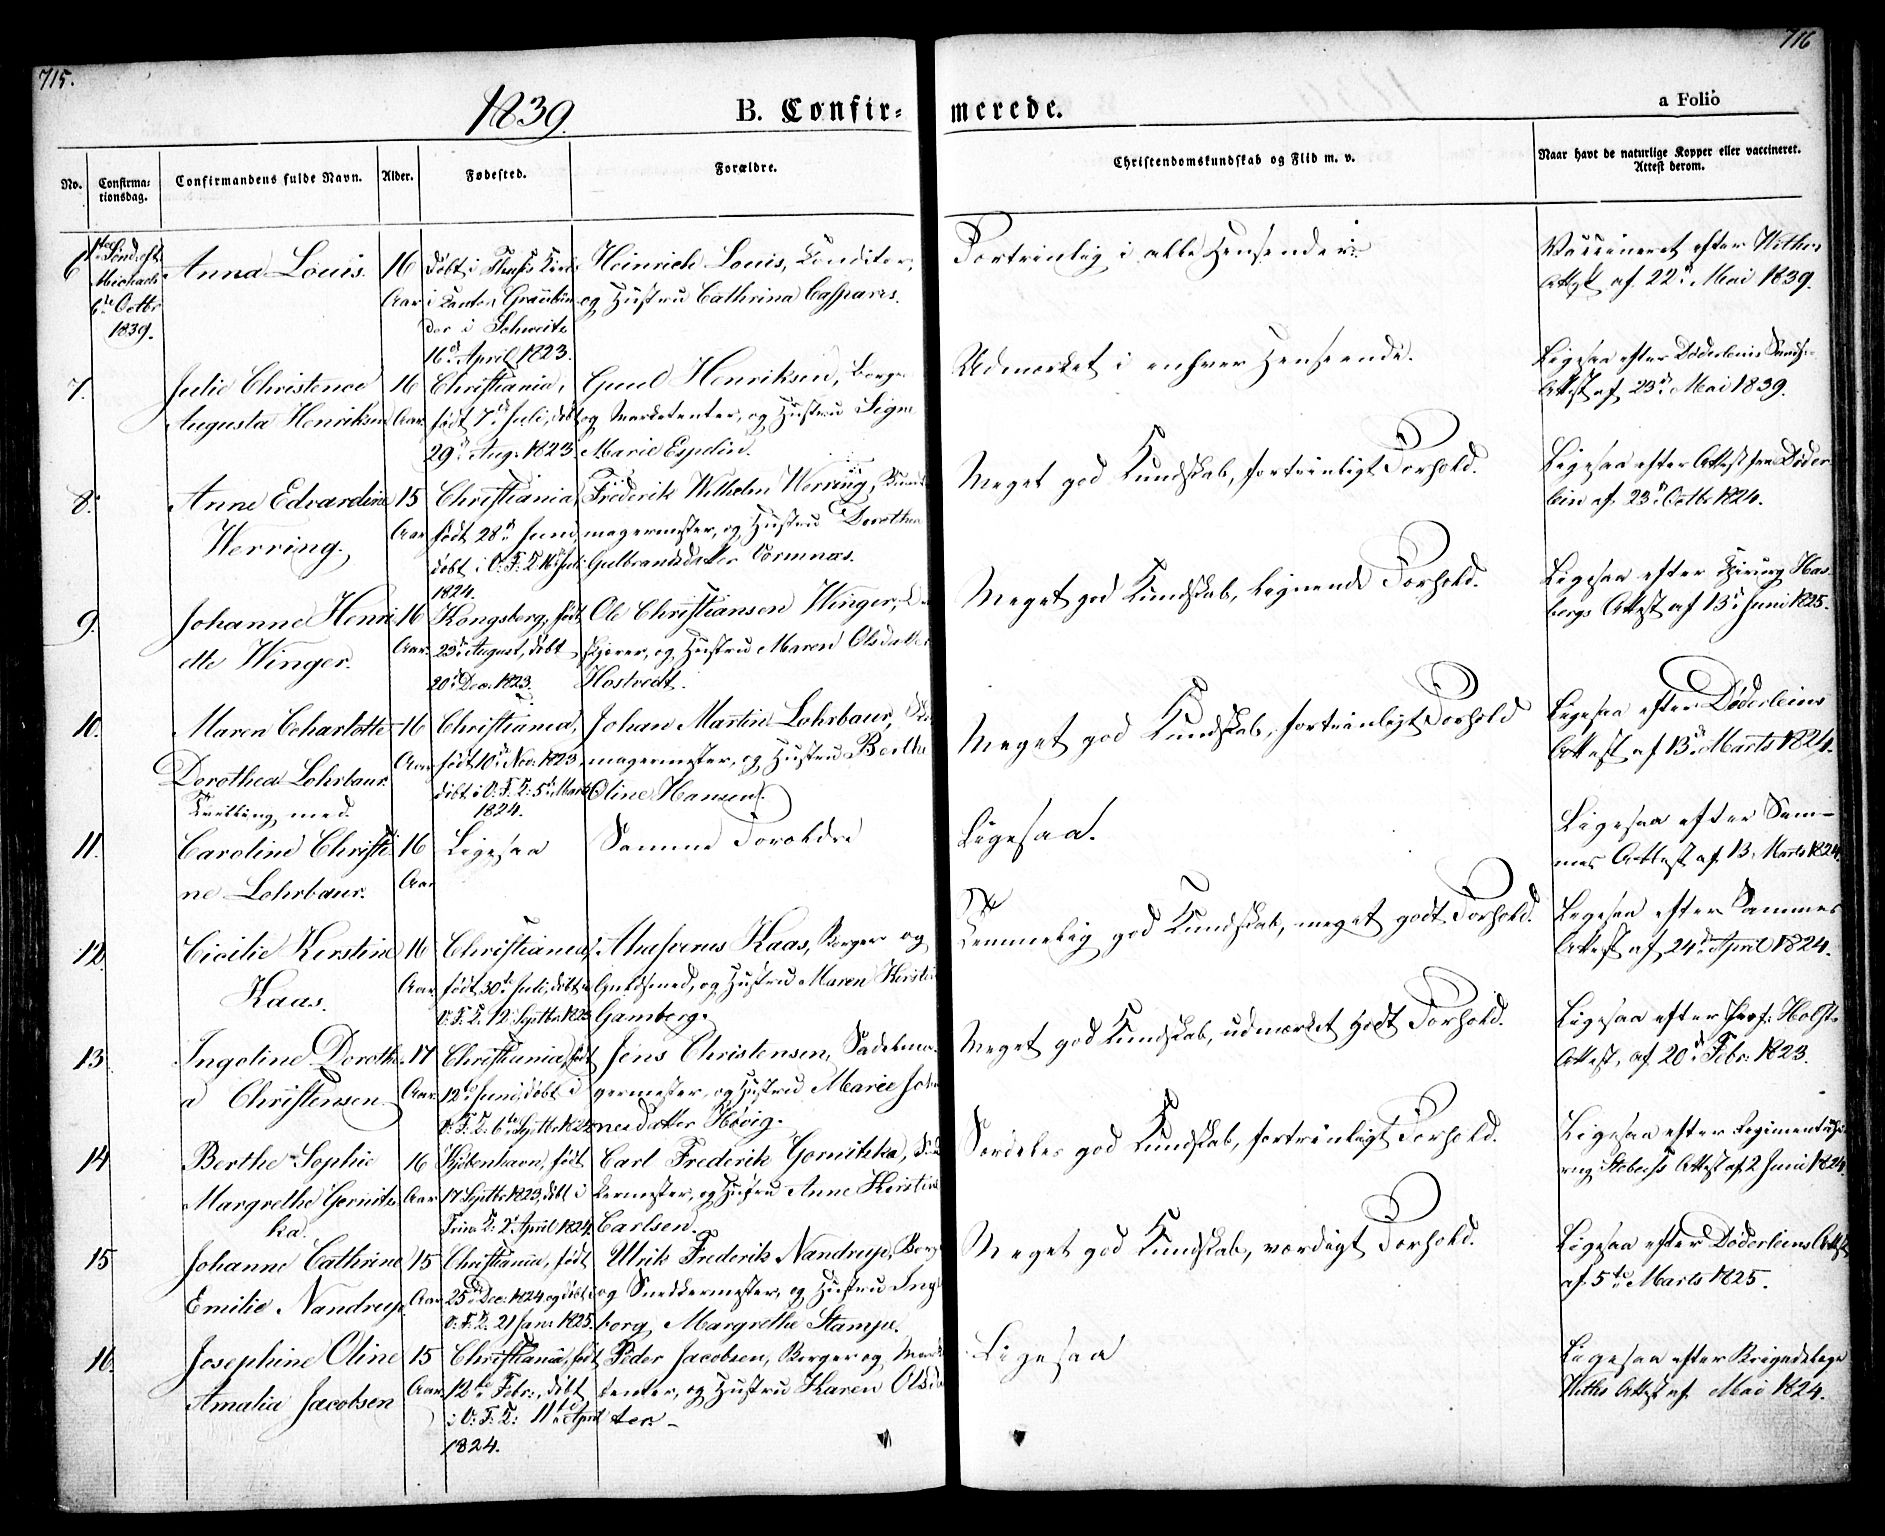 715.
716
1839.
B. Confir-
merede.
a Folio
No.
Confirma-
tionsdag.
Confirmandens fulde Navn.
Alder.
Fødested.
Forældre.
Christendomskundskab og Flid m. v.
Naar havt de naturlige Kopper eller vaccineret.
Attest derom.
6
Michaeli
6te Octbr
1839.
Anna Louis.
16
Aar
døbt i
i Canton Graubün-
den i Schweitz
16d April 1823.
Heinrich Louis, Conditor,
og Hustru Cathrina Casparis.
Fortrinlig i alle Henseender
Vaccineret efter
Attest af 22d Mai 1839.
7.
Julie Christence
Augusta Henriksen
16
Aar
Christiania,
født 7d Juli, døbt
29d Aug. 1823
Henriksen, Borger
og Marketenter, og Hustru Signe
Marie Espelin.
Udmærket i enhver Henseende.
Ligesaa efter Døderleins
Attest af 23d Mai 1839.
8.
Anne Edvardine
Werring.
15
Aar
Christiania,
født 28d Juni,
døbt i V. F. K. 16d Juli
1824.
Frederik Wilhelm Werring,
magermester, og Hustru Dorothea
Gulbrandsdatter
Meget god Kundskab, fortrinligt Forhold.
Ligesaa efter Attest fra Døder-
lein af 23d Octb 1824.
9.
Johanne Henri-
ette Winger.
16
Aar
Kongsberg, født
23d August, døbt
20d Dec. 1823.
Ole Christiansen Winger,
og Hustru Maren Olsdatter
Hostvedt.
Meget god Kundskab, lignende Forhold.
Ligesaa efter Chirurg Has-
bergs Attest af 13d Juni 1825.
10.
Maren Charlotte
Dorothea Lohrbaur.
Tvilling med
16
Aar
Christiania,
født 10d Nov. 1823,
døbt i V. F. K. 5d Marts
1824.
Johan Martin Lohrbaur,
magermester, og Hustru Berthe
Oline Hansen.
Meget god Kundskab, fortrinligt Forhold
Ligesaa efter Døderleins
Attest af 13d Marts 1824.
11.
Caroline Christi-
ne Lohrbaur.
16
Aar
Ligesaa
Samme Forældre
Ligesaa.
Ligesaa efter Sam-
mes Attest af 13. Marts 1824
12.
Cicilie Kerstine
Kaas.
16
Aar
Christiania,
født 30d Juli, døbt i
V. F. K. 12d Septbr. 1823
Ahasverus Kaas, Borger og
Guldsmed, og Hustru Maren Kirstine
Gamborg.
Temmelig god Kundskab, meget godt Forhold.
Ligesaa efter Sammes
Attest af 24d April 1824.
13
Ingoline Dorothe-
a Christensen
17
Aar
Christiania, født
12te Juni, døbt i
V. F. K. 6te Septbr 1822
Jens Christensen, Sadelma-
germester, og Hustru Marie Johan-
nesdatter Høvig.
Meget god Kundskab, udmærket godt Forhold.
Ligesaa efter Prof. Holsts
Attest, af 20d Febr. 1823.
14
Berthe Sophie
Margrethe Gornitz-
ka.
16
Aar
Kjøbenhavn, født
17 Septbr 1823, døbt i
Trin. K. 2d April 1824
Carl Frederik Gornitzka,
kermester, og Hustru Anne Kirstine
Carlsen.
Særdeles god Kundskab, fortrinligt Forhold.
Ligesaa efter Regimentschi-
rurg Attest af 2 Juni 1824
15
Johanne Cathrine
Emilie Nandrup
15
Aar
Christiania, født
25de Dec. 1824 og døbt i
V. F. K. 21 Janr 1825.
Ulrik Frederik Nandrup, Borger
og Snedkermester, og Hustru Inge-
borg Margrethe Stampe.
Meget god Kundskab, værdigt Forhold.
Ligesaa efter Døderleins Attest
af 5te Marts 1825.
16.
Josephine Oline
Amalia Jacobsen
15
Aar
Christiania, født
12te Febr., døbt
i V. F. K. 11te April
1824.
Peder Jacobsen, Borger og Marke-
tenter, og Hustru Karen Olsdat-
ter.
Ligesaa
Ligesaa efter Brigadelæge
Attest af Mai 1824.